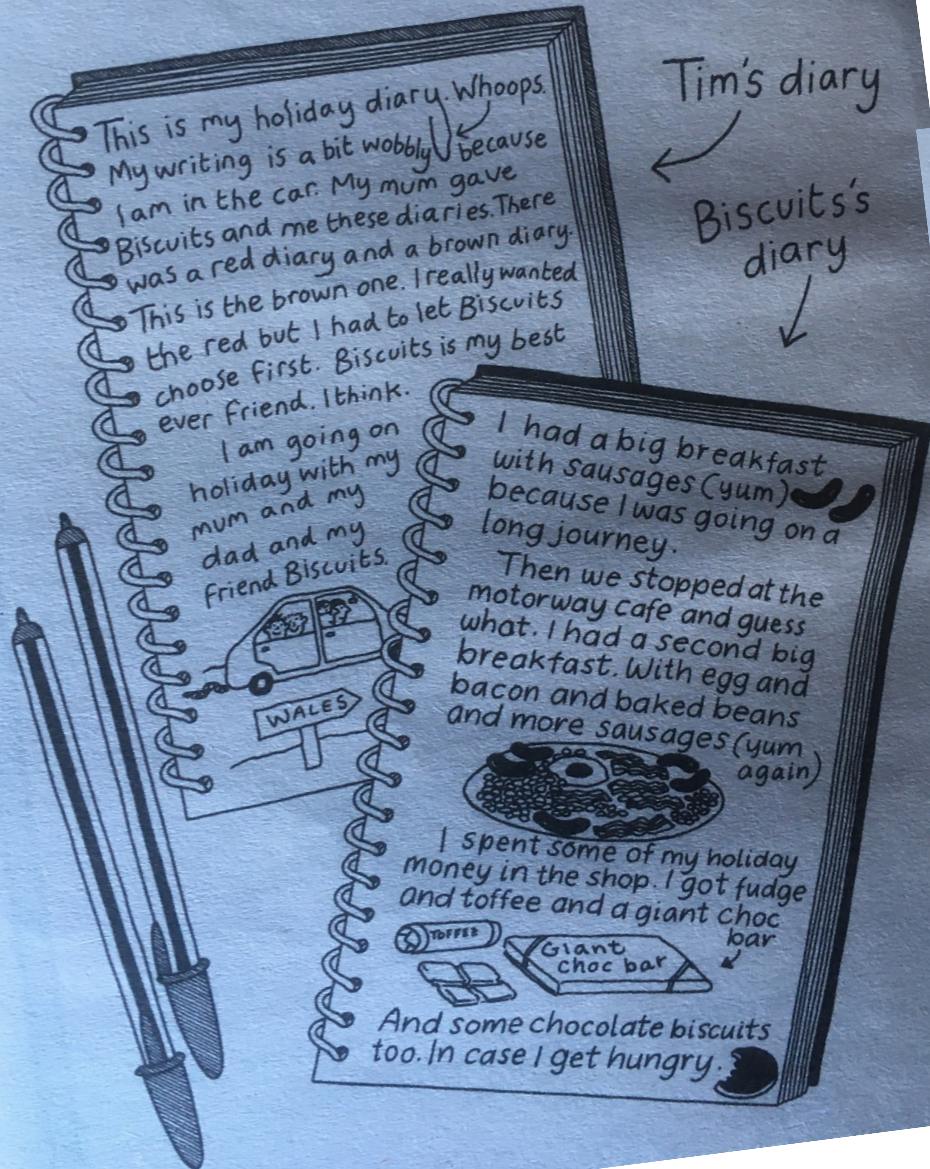 This is my holiday diary. Whoops.
My writing is a bit wobbly because
I am in the car. My mum gave
Biscuits and me these diaries. There
was a red diary and a brown diary.
This is the brown one. I really wanted
the red but I had to let Biscuits
choose first. Biscuits is my best
ever friend. I think.
I am going on
holiday with my
mum and my
dad and my
friend Biscuits.
WALES
Tim's diary
Biscuits's
diary
I had a big breakfast
with sausages (yum)
because I was going on a
long journey.
Then we stopped at the
motorway cafe and guess
what. I had a second big
breakfast. With egg and
bacon and baked beans
and more sausages (yum
again)
I spent some of my holiday
money in the shop. I got fudge
and toffee and a giant choc
bar
TOFFEE
Giant
choc bar
And some chocolate biscuits
too. In case I get hungry.